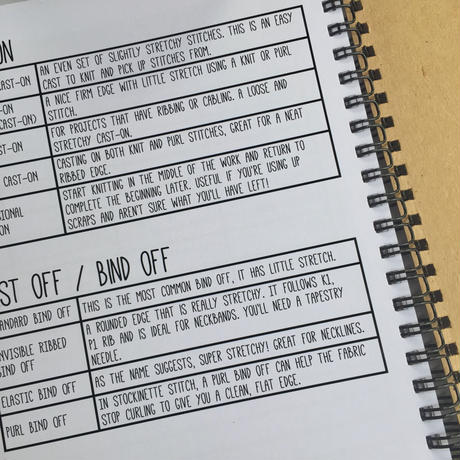 ON
CAST-ON
AN EVEN SET OF SLIGHTLY STRETCHY STITCHES. THIS IS AN EASY
CAST TO KNIT AND PICK UP STITCHES FROM.
-ON
CAST-ON)
A NICE FIRM EDGE WITH LITTLE STRETCH USING A KNIT OR PURL
STITCH.
ST-ON
FOR PROJECTS THAT HAVE RIBBING OR CABLING. A LOOSE AND
STRETCHY CAST-ON.
CAST-ON
CASTING ON BOTH KNIT AND PURL STITCHES, GREAT FOR A NEAT
RIBBED EDGE.
SIONAL
ON
START KNITTING IN THE MIDDLE OF THE WORK AND RETURN TO
COMPLETE THE BEGINNING LATER. USEFUL IF YOU'RE USING UP
SCRAPS AND AREN'T SURE WHAT YOU'LL HAVE LEFT!
ST OFF / BIND OFF
TANDARD BIND OFF
THIS IS THE MOST COMMON BIND OFF, IT HAS LITTLE STRETCH.
NVISIBLE RIBBED
BIND OFF
A ROUNDED EDGE THAT IS REALLY STRETCHY. IT FOLLOWS K1,
P1 RIB AND IS IDEAL FOR NECKBANDS. YOU'LL NEED A TAPESTRY
NEEDLE.
ELASTIC BIND OFF
AS THE NAME SUGGESTS, SUPER STRETCHY! GREAT FOR NECKLINES.
PURL BIND OFF
IN STOCKINETTE STITCH, A PURL BIND OFF CAN HELP THE FABRIC
STOP CURLING TO GIVE YOU A CLEAN, FLAT EDGE.